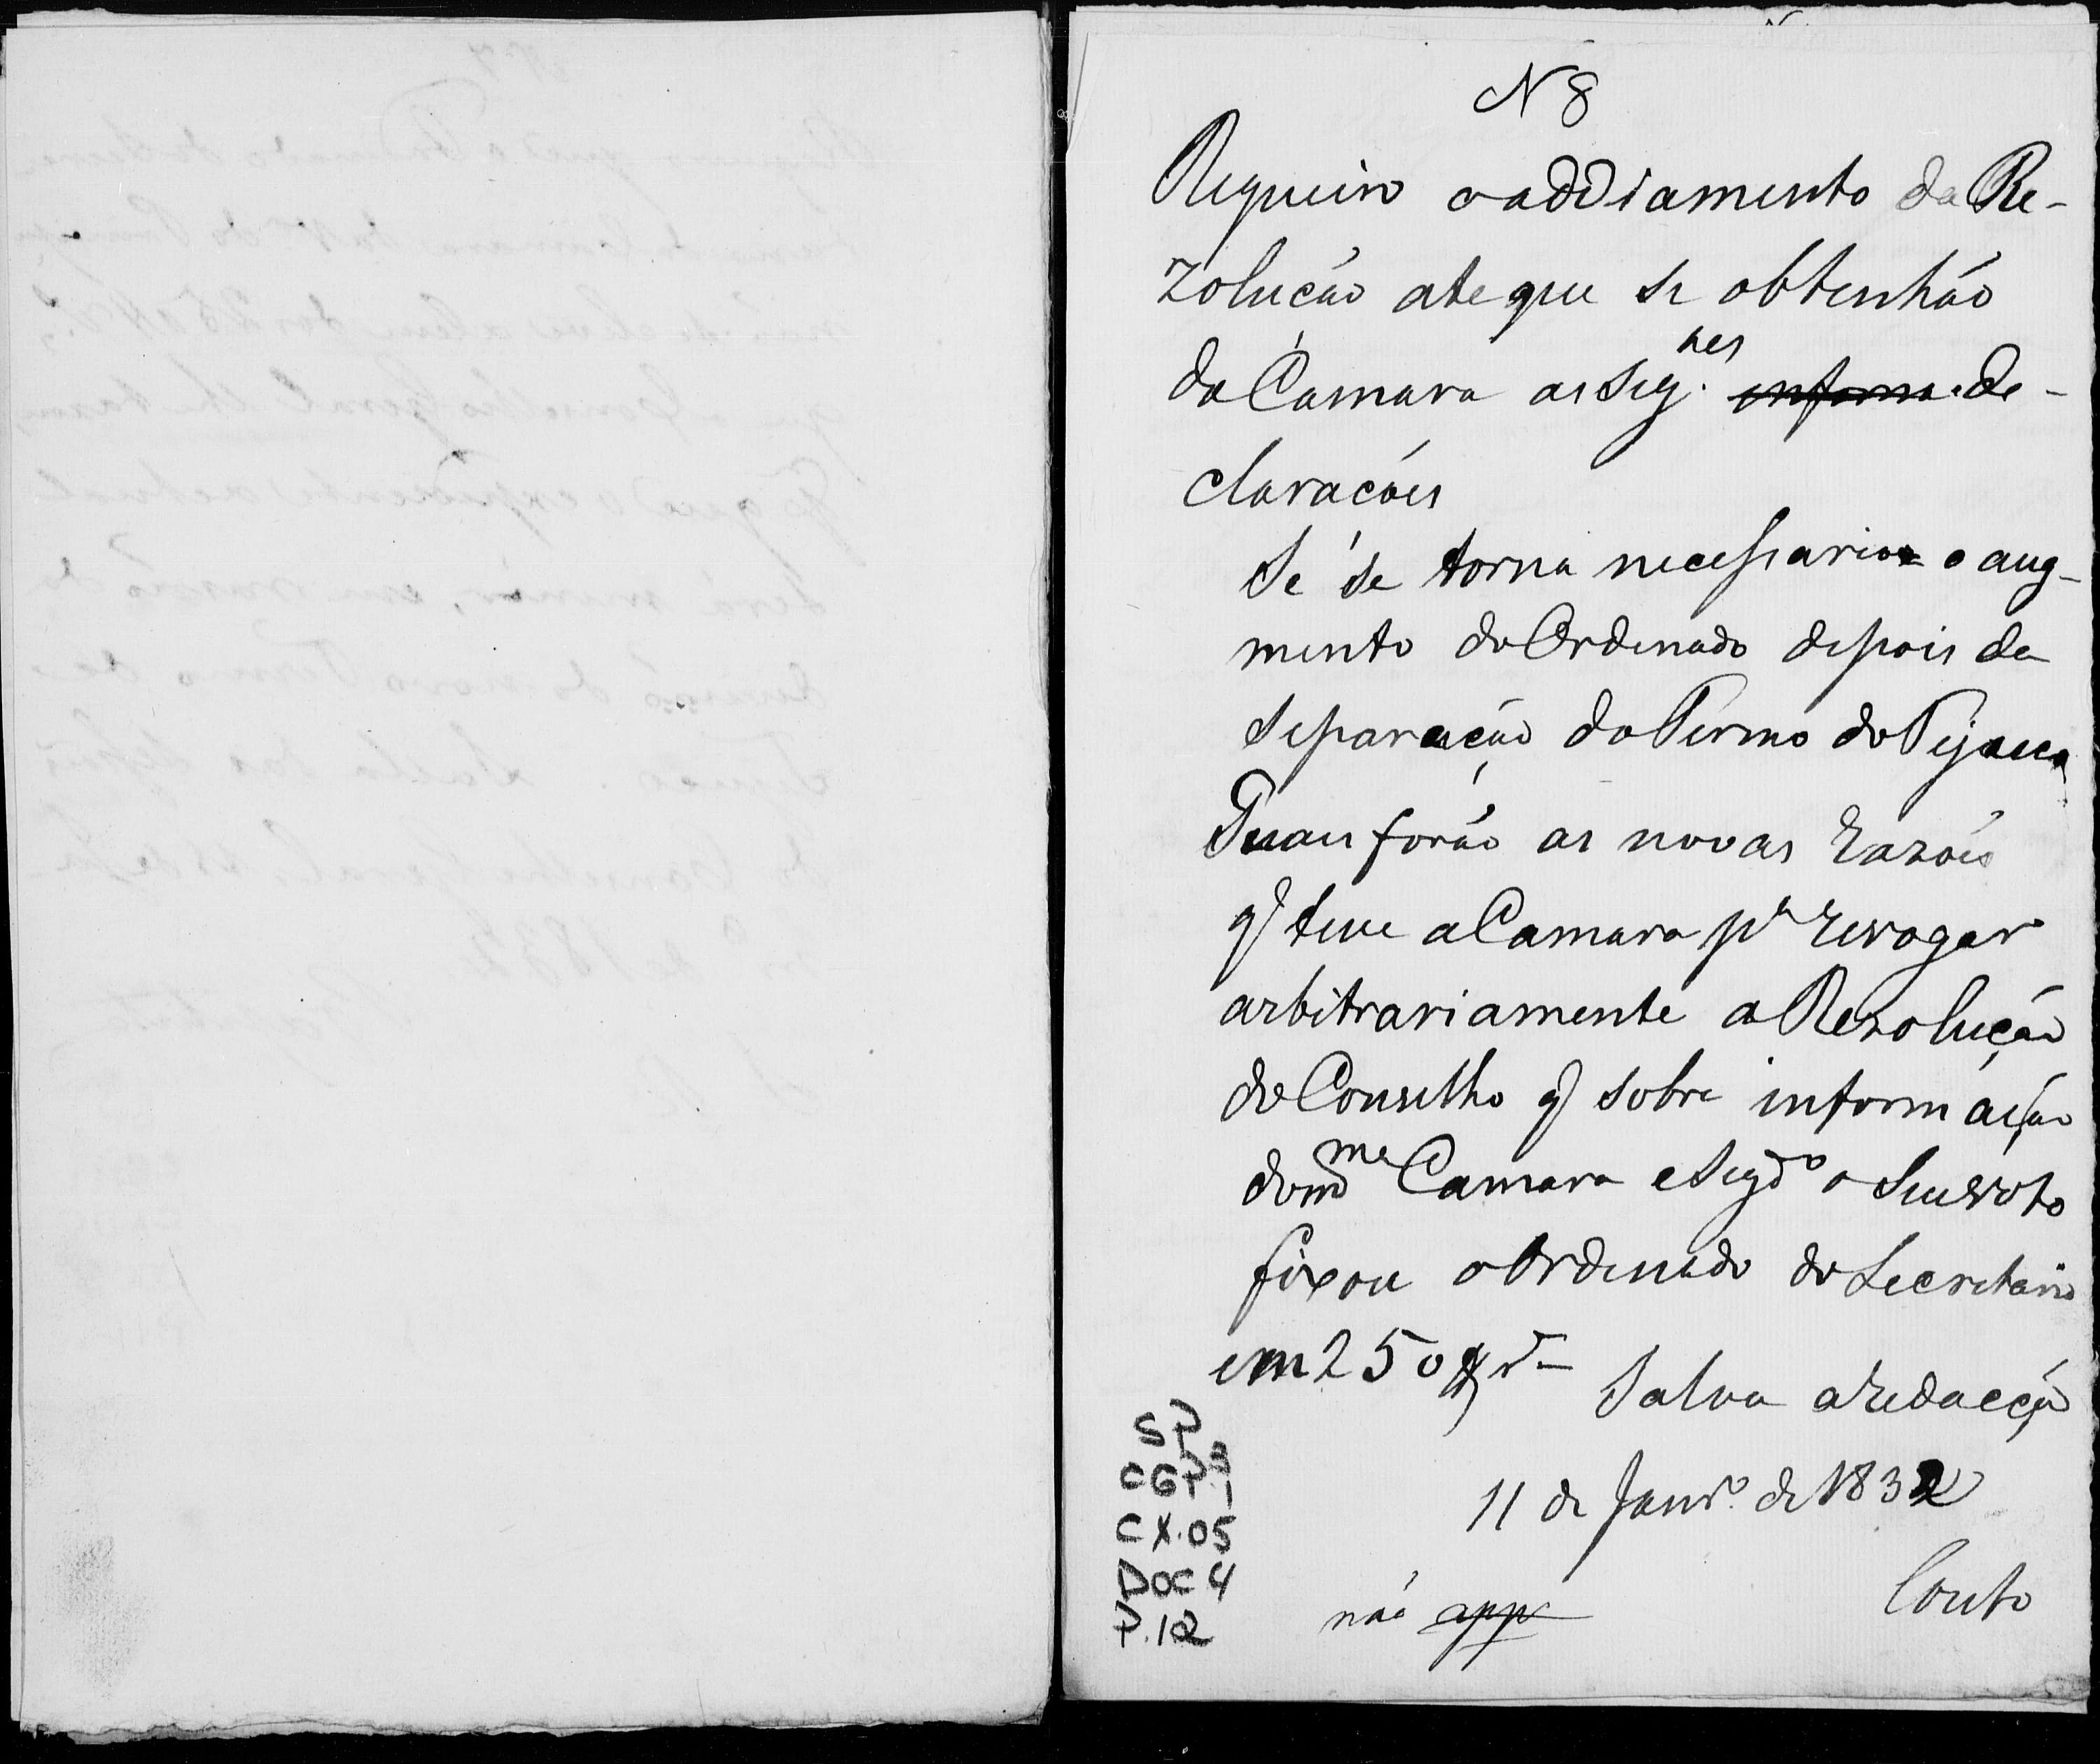 N 8
Requeiro o addiamento da Re-
zolucáo ate que se obtenháo
da Camara as seg.nes informa de-
claracóes
Se se torna necessario o aug-
mento do Ordenado depois da
separaçáo do Termo do Tijuco
Quaes foráo as novas razóes
q teve a Camara pa revogar
arbitrariamente a Rezoluçáo
do Conselho q sobre informaçáo
da mma Camara e segdo o seu voto
fixou o Ordenado do Secretario
em 250$rs
Salva a redacçáo
11 de Janro. de 1832
Couto
náo app
SP
CGP.1
CX.05
DOC 4
P.12